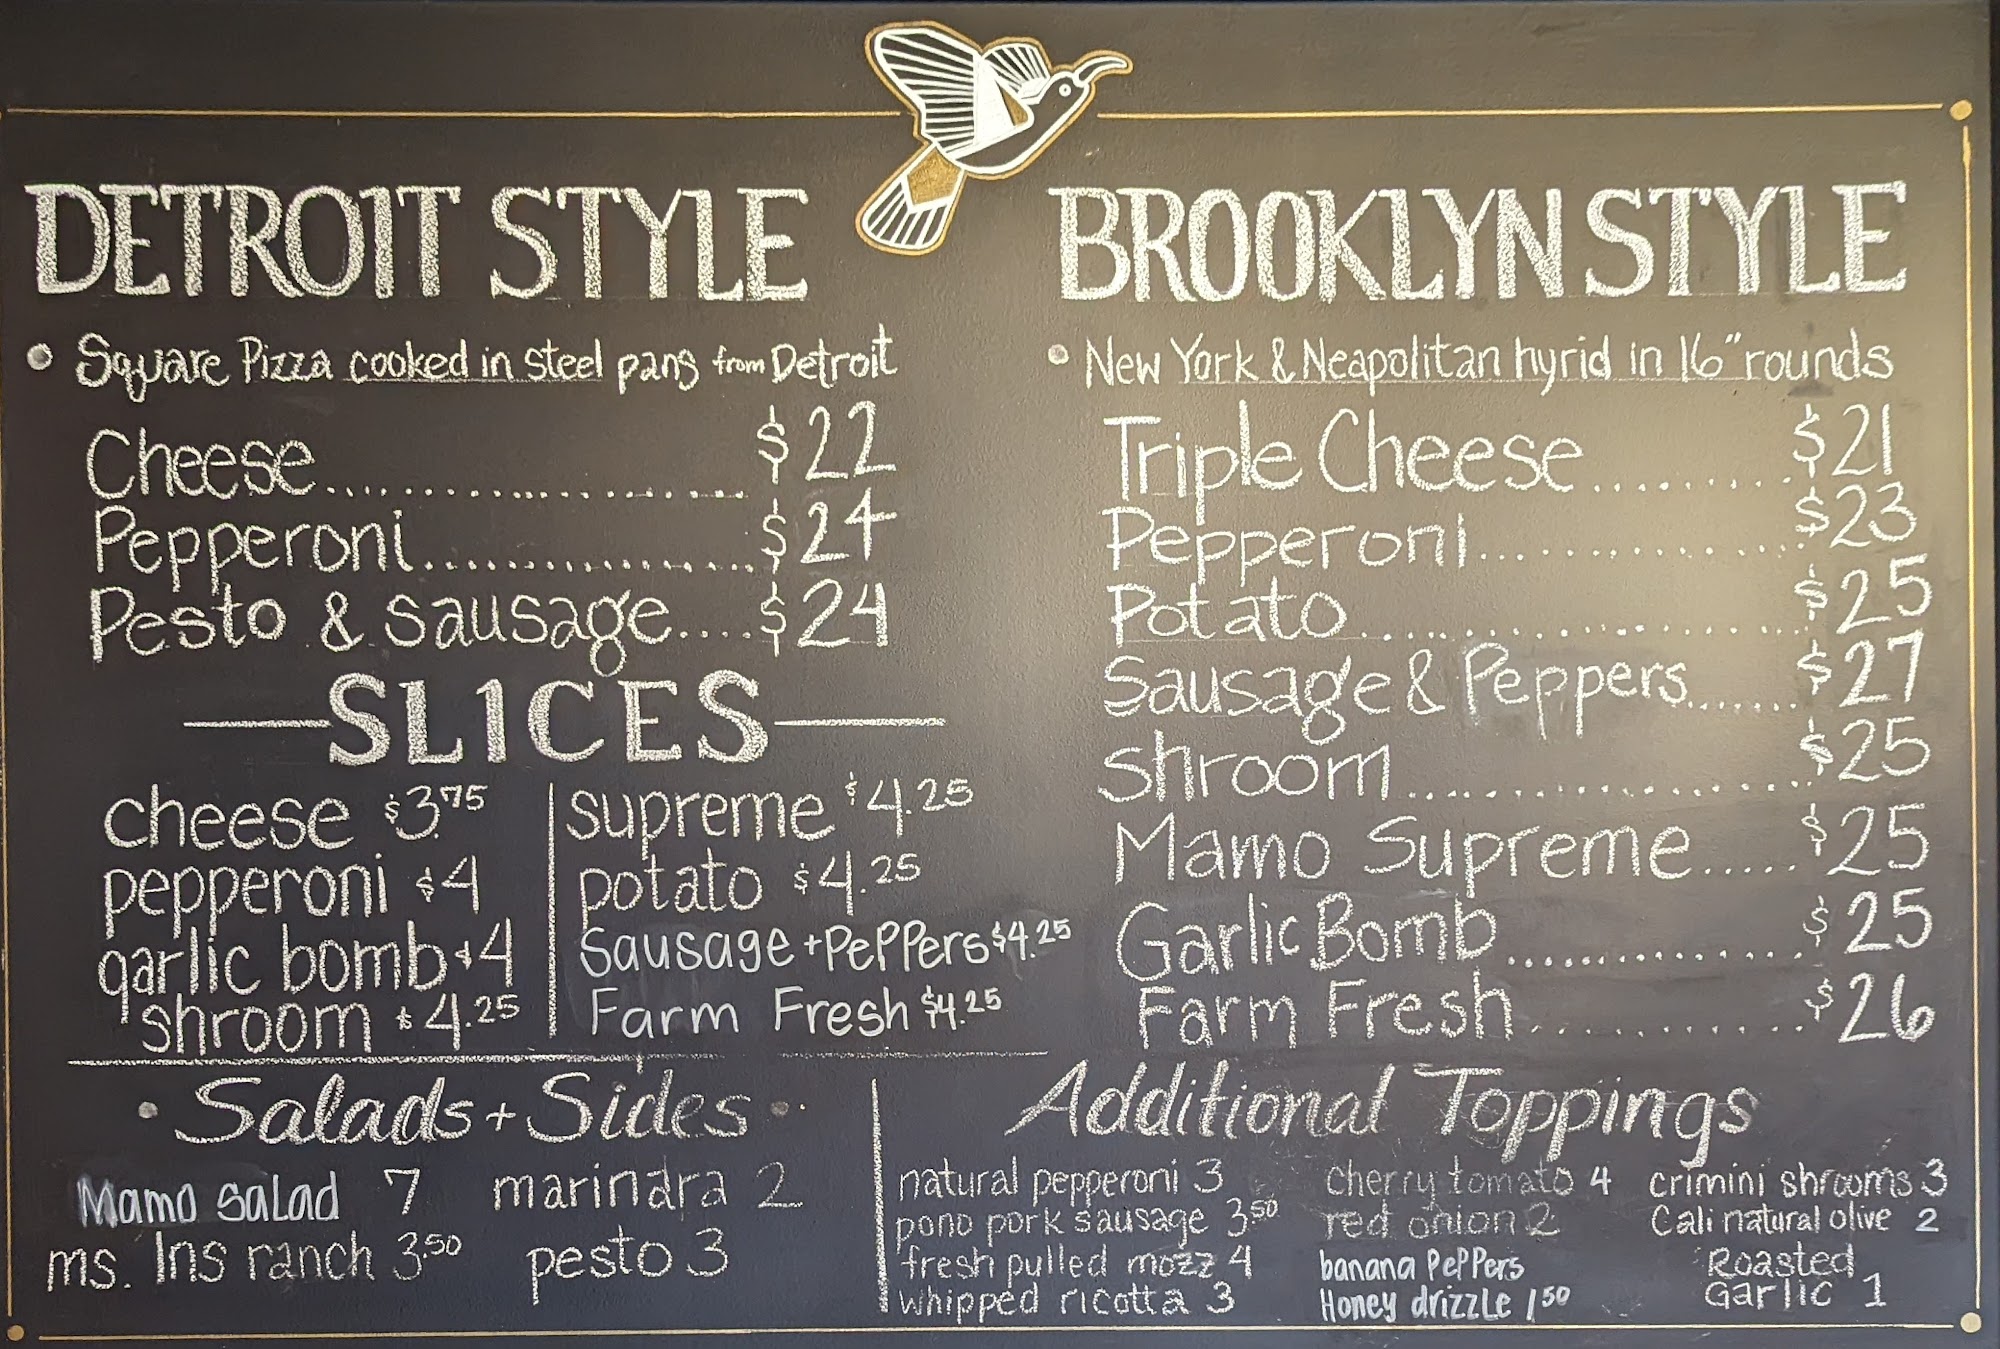 DETROIT STYLE
• Square Pizza cooked in steel pans from Detroit
Cheese.................... $22
Pepperoni.................. $24
Pesto & sausage.... $24
SLICES
cheese $3.75
pepperoni $4
garlic bomb $4
shroom $4.25
supreme $4.25
potato $4.25
Sausage + PePPers $4.25
Farm Fresh $4.25
• Salads + Sides •
Mamo Salad 7
ms. Ins ranch 3.50
marindra 2
pesto 3
BROOKLYN STYLE
• New York & Neapolitan hyrid in 16" rounds
Triple Cheese.......... $21
Pepperoni................ $23
Potato..................... $25
Sausage & Peppers....... $27
shroom.................... $25
Mamo Supreme..... $25
Garlic Bomb............... $25
Farm Fresh.............. $26
Additional Toppings
natural pepperoni 3
pono pork sausage 3.50
fresh pulled mozz 4
whipped ricotta 3
cherry tomato 4
red onion 2
banana PePPers
Honey drizzle 1.50
crimini shrooms 3
Cali natural olive 2
Roasted
Garlic 1